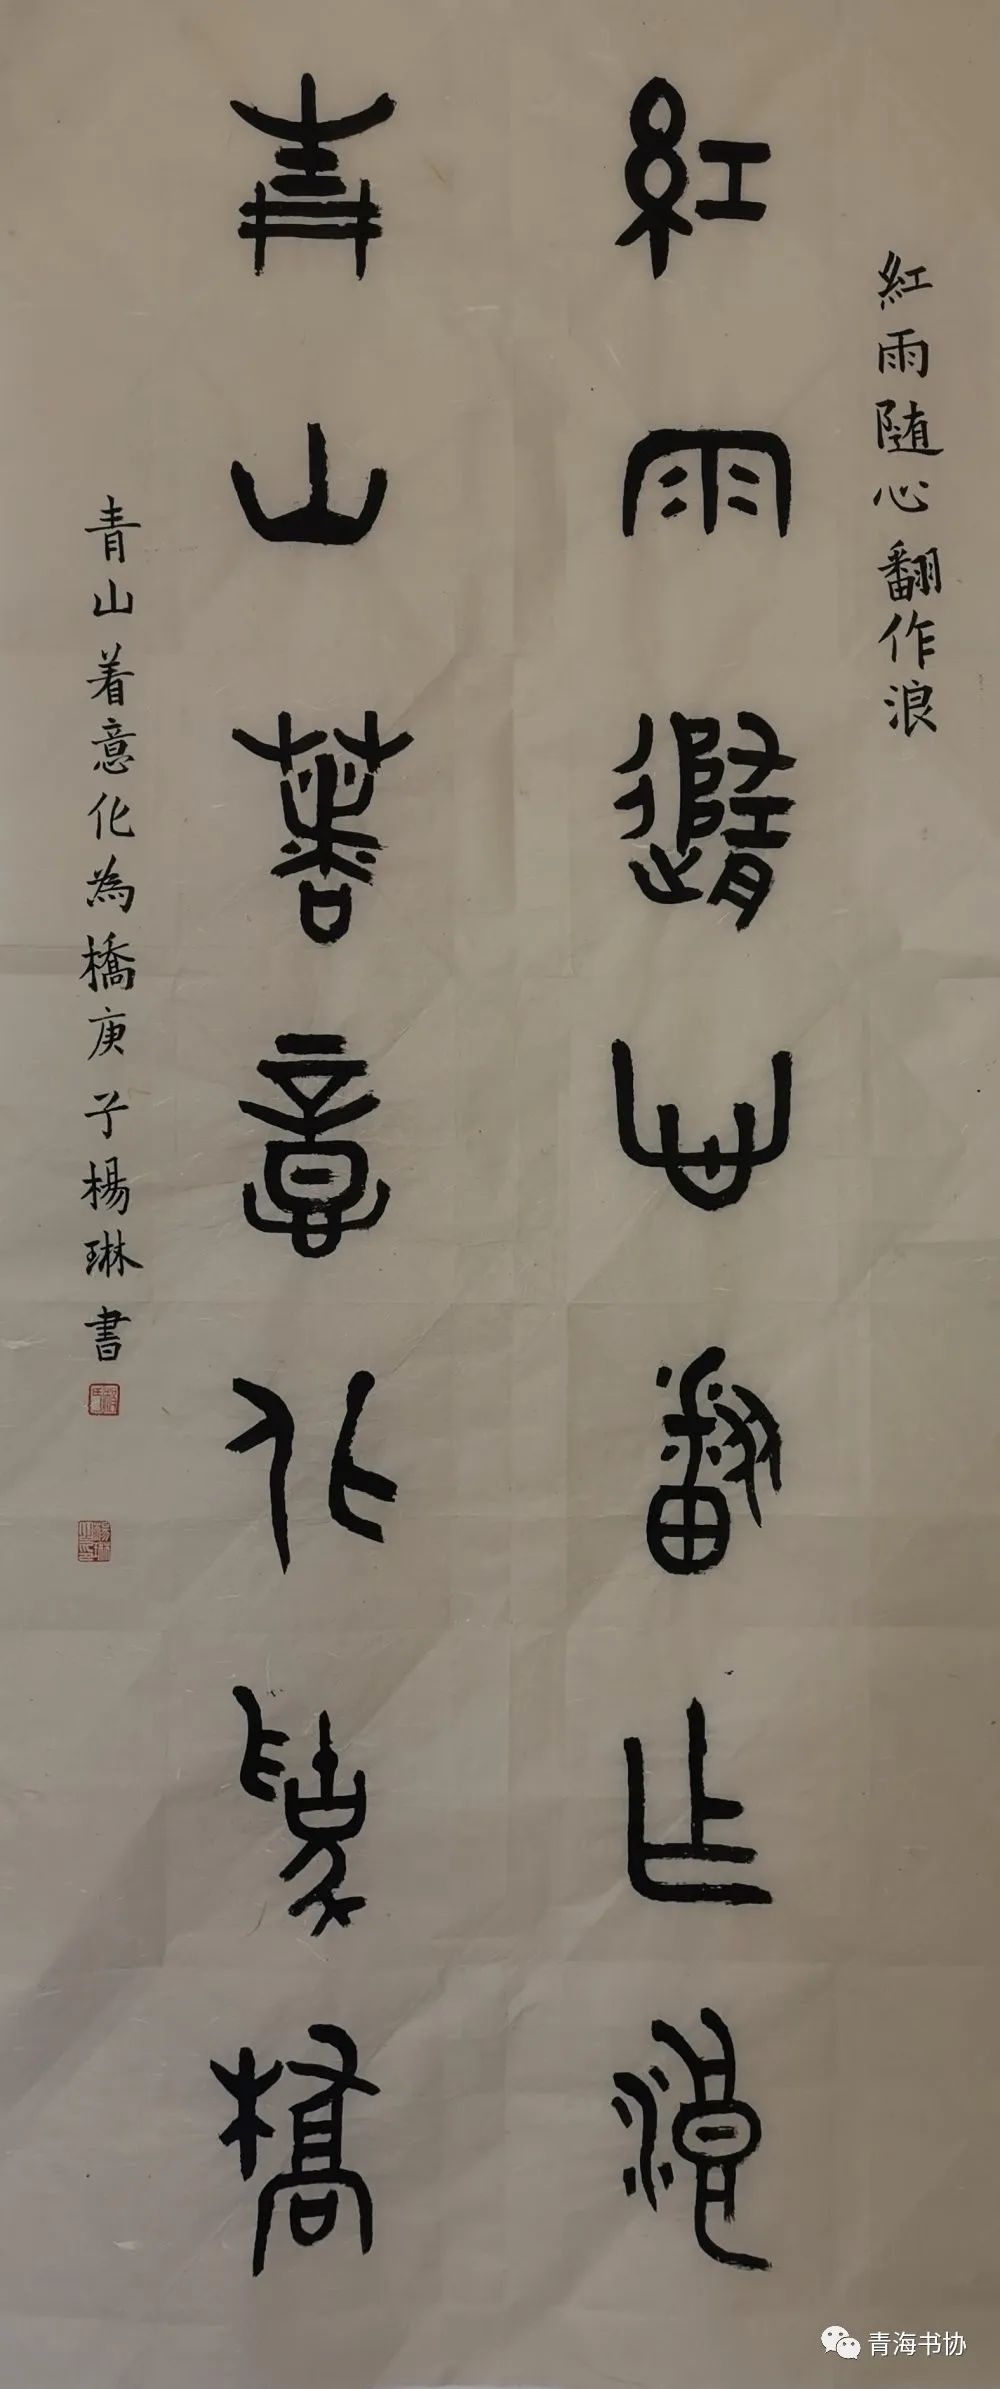 紅雨隨心翻作浪
青山著意化為橋
紅雨随心翻作浪
青山着意化為橋庚子楊琳書
青海书协